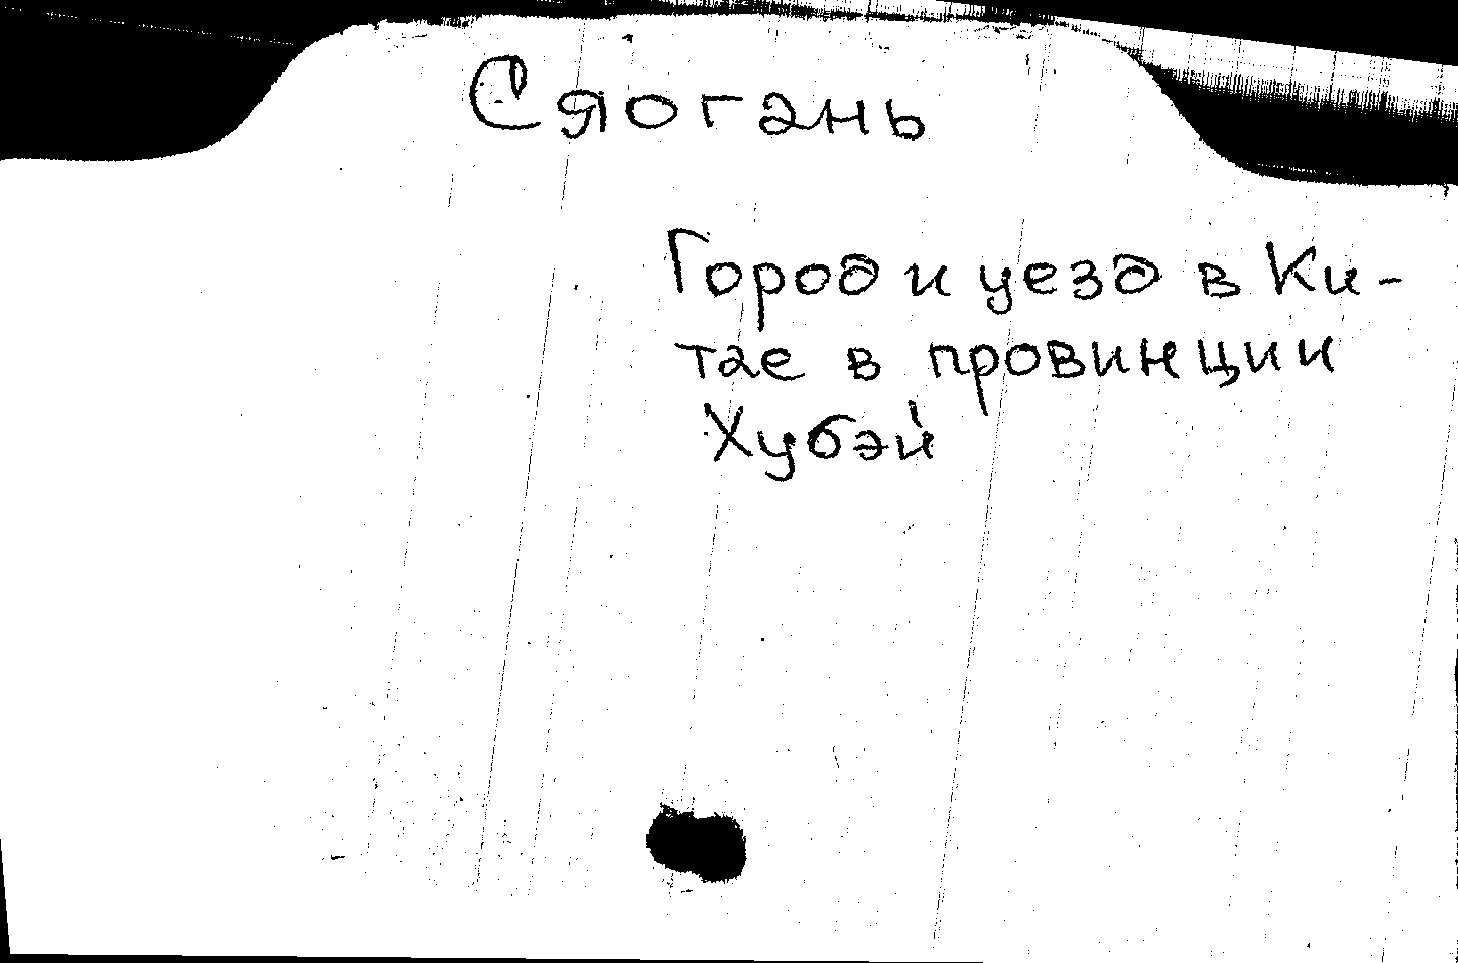 Сяогань
Город и уезд в Ки-
тае в провинции
Хубэй